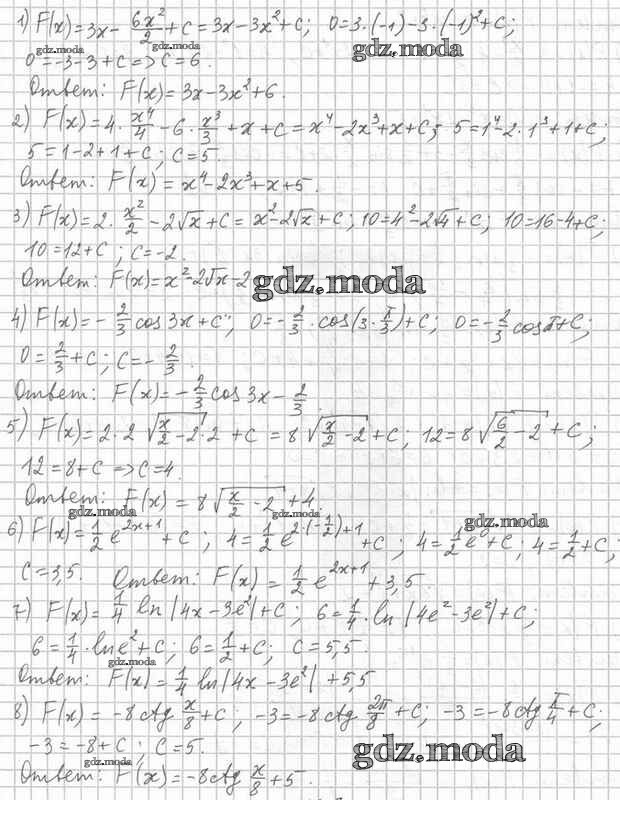 1) F(x)=3x- 6x²/2 +C=3x-3x²+C; 0=3·(-1)-3·(-1)²+C;
gdz.moda gdz.moda
0=-3-3+C=>C=6.
Ответ: F(x)=3x-3x²+6.
2) F(x)=4·x⁴/4-6·x³/3+x+C=x⁴-2x³+x+C; 5=1⁴-2·1³+1+C;
5=1-2+1+C; C=5.
Ответ: F(x)=x⁴-2x³+x+5.
3) F(x)=2·x²/2-2√x+C=x²-2√x+C; 10=4²-2√4+C; 10=16-4+C;
10=12+C; C=-2.
Ответ: F(x)=x²-2√x-2
gdz.moda
4) F(x)=-2/3 cos3x+C; 0=-2/3·cos(3·π/3)+C; 0=-2/3 cosπ+C;
0=2/3+C; C=-2/3.
Ответ: F(x)=-2/3 cos3x-2/3.
5) F(x)=2·2√(x/2-2)·2+C=8√(x/2-2)+C; 12=8√(6/2-2)+C;
12=8+C=>C=4.
Ответ: F(x)=8√(x/2-2)+4.
gdz.moda gdz.moda
6) F(x)=1/2 e^(2x+1)+C; 4=1/2 e^(2·(-1/2)+1)+C; 4=1/2 e⁰+C; 4=1/2+C;
C=3,5. Ответ: F(x)=1/2 e^(2x+1)+3,5.
7) F(x)=1/4 ln|4x-3e²|+C; 6=1/4·ln|4e²-3e²|+C;
6=1/4·lne²+C; 6=1/2+C; C=5,5.
gdz.moda
Ответ: F(x)=1/4 ln|4x-3e²|+5,5
8) F(x)=-8ctg x/8+C; -3=-8ctg 2π/8+C; -3=-8ctg π/4+C;
-3=-8+C; C=5.
gdz.moda gdz.moda
Ответ: F(x)=-8ctg x/8+5.